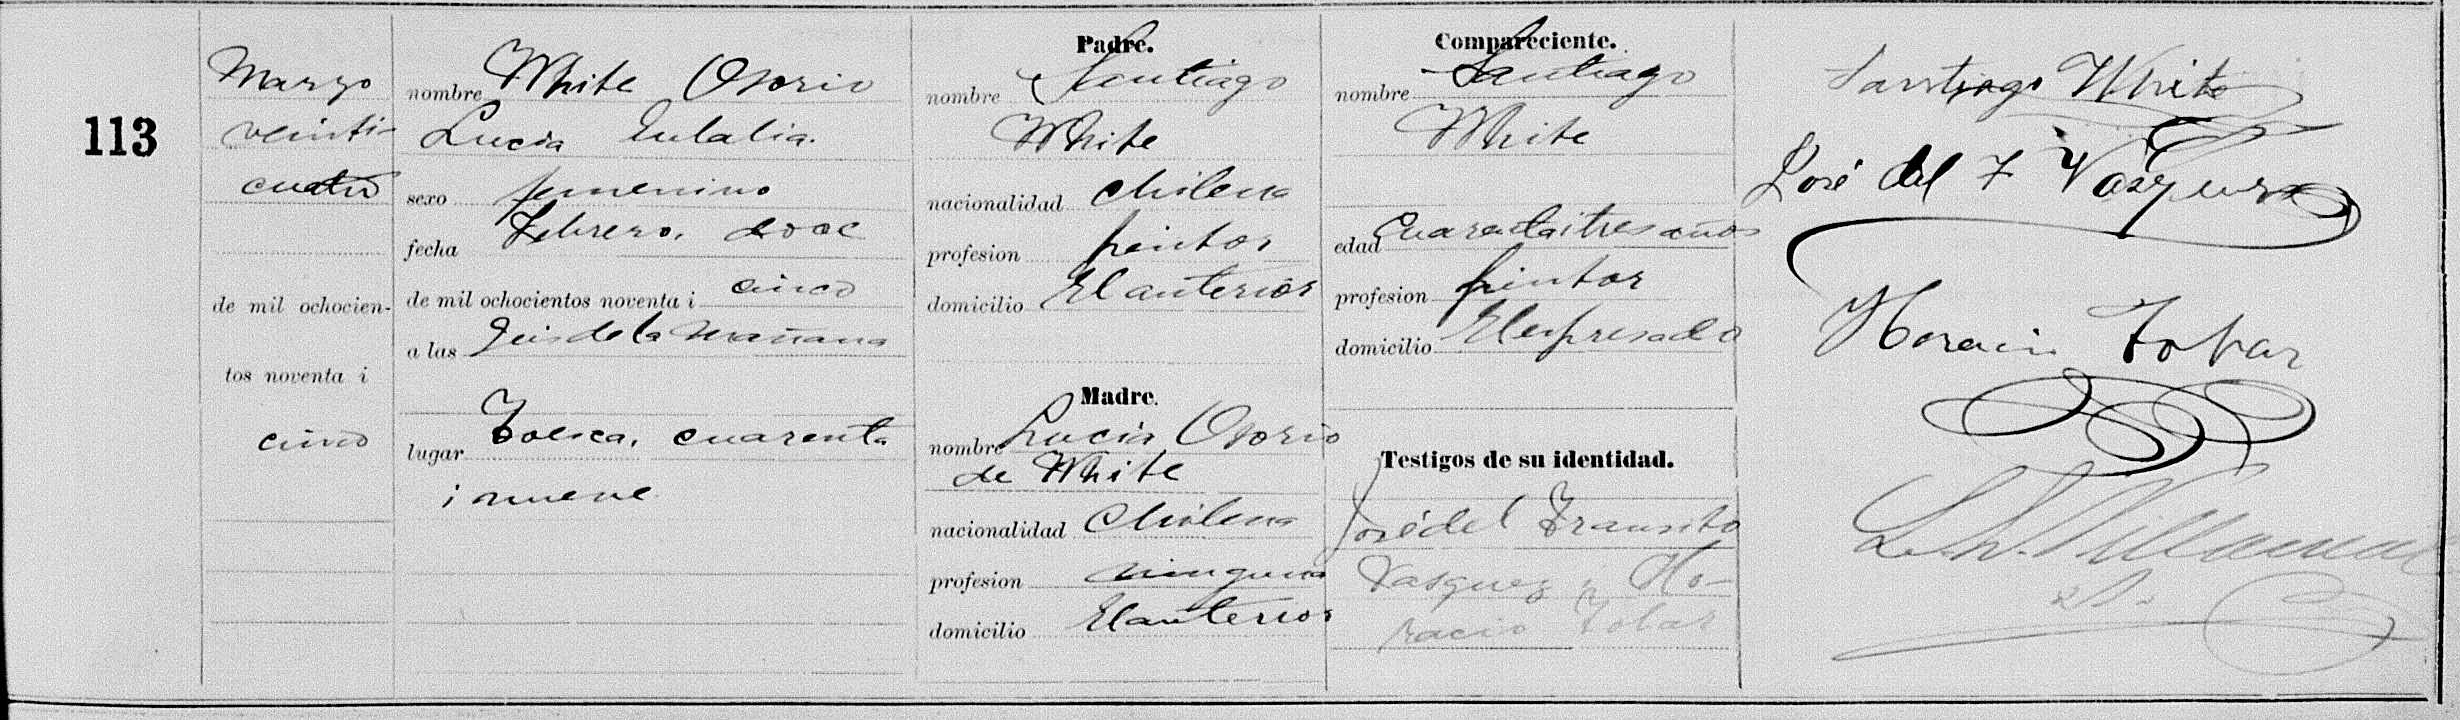 113
Marzo
veinti-
cuatro
de mil ochocien-
tos noventa i
cinco
nombre White Osorio
Lucia Eulalia.
sexo femenino
fecha Febrero, doce
de mil ochocientos noventa i cinco
a las Seis de la mañana
lugar Toesca, cuarenta
i nueve
Padre.
nombre Santiago
White
nacionalidad chilena
profesion pintor
domicilio El anterior
Madre.
nombre Lucia Osorio
de White
nacionalidad Chilena
profesion ninguna
domicilio El anterior
Compareciente.
nombre Santiago
White
edad Cuarentaitres años
profesion pintor
domicilio El espresado
Testigos de su identidad.
José del Transito
Vasquez i Ho-
racio Tobar
Santiago White
José del T Vasquez
Horacio Tobar